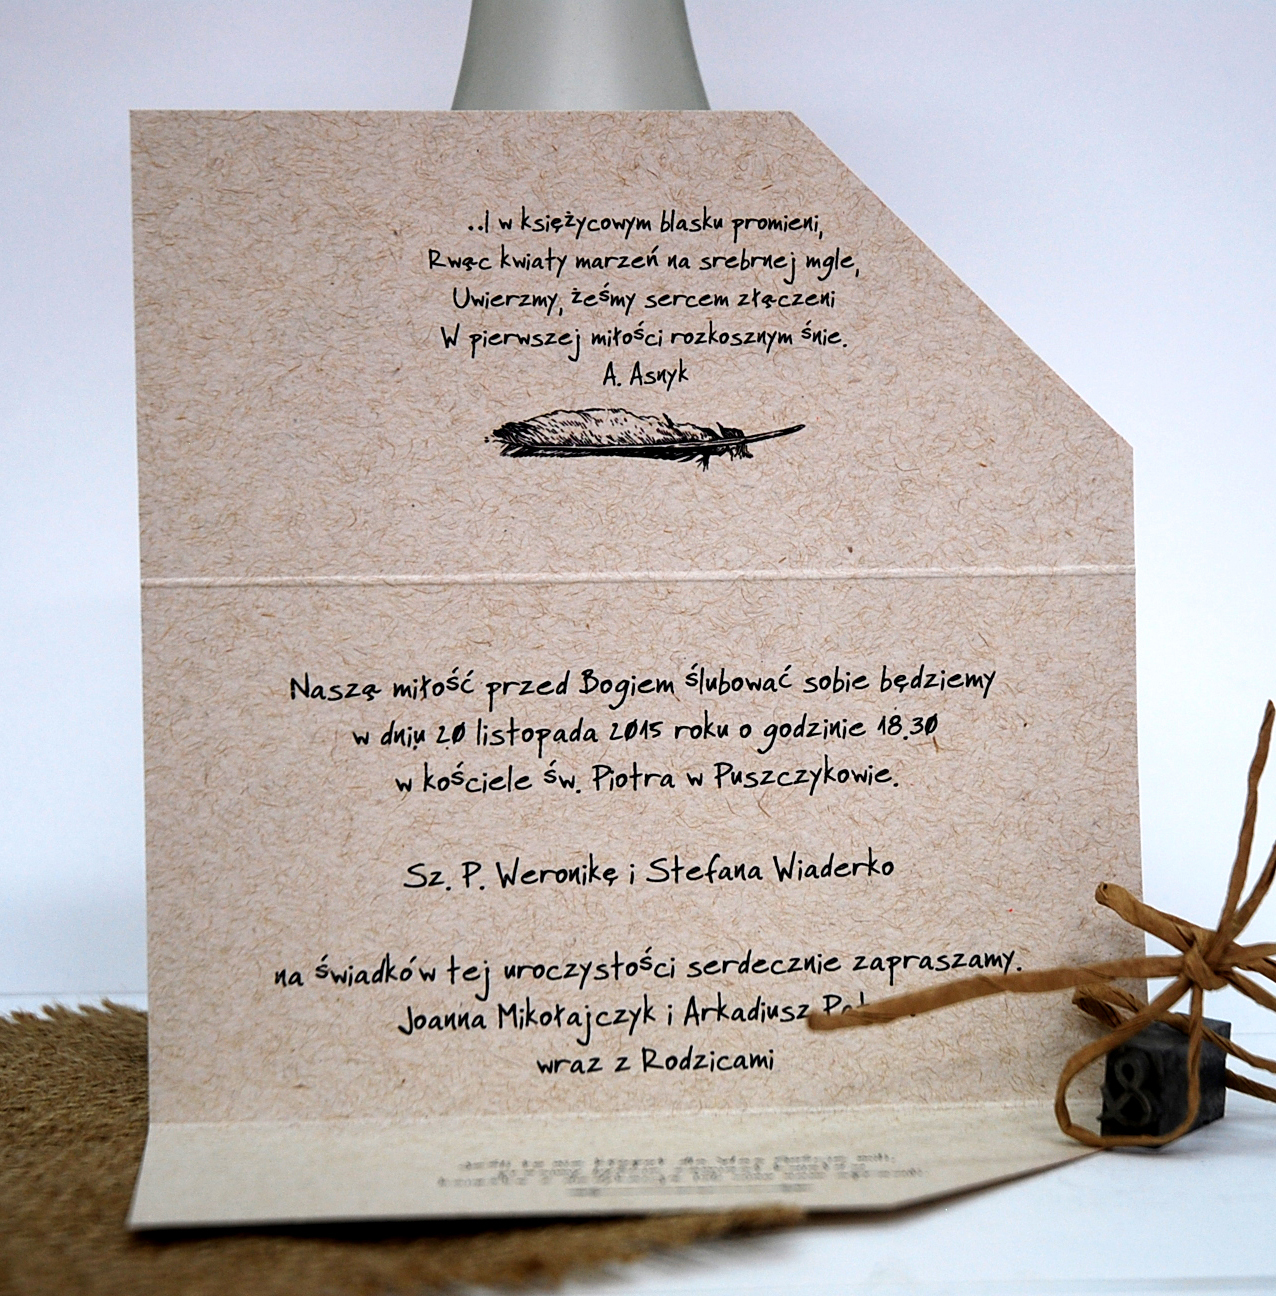 ..I w księżycowym blasku promieni,
Rwąc kwiaty marzeń na srebrnej mgle,
Uwierzmy, żeśmy sercem złączeni
W pierwszej miłości rozkosznym śnie.
A. Asnyk
Naszą miłość przed Bogiem ślubować sobie będziemy
w dniu 20 listopada 2015 roku o godzinie 18.30
w kościele św. Piotra w Puszczykowie.
Sz. P. Weronikę i Stefana Wiaderko
na świadków tej uroczystości serdecznie zapraszamy.
Joanna Mikołajczyk i Arkadiusz
wraz z Rodzicami
&